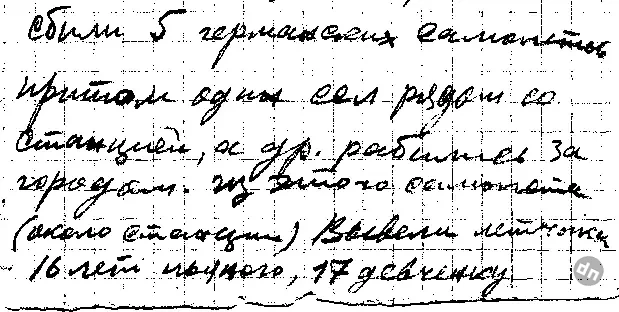 сбили 5 германских самолетов
притом один сел рядом со
станцией, а др. рабились за
городом. из этого самолета
(около станции) вывели летчика
16 лет пьяного, 17 девченку
dn